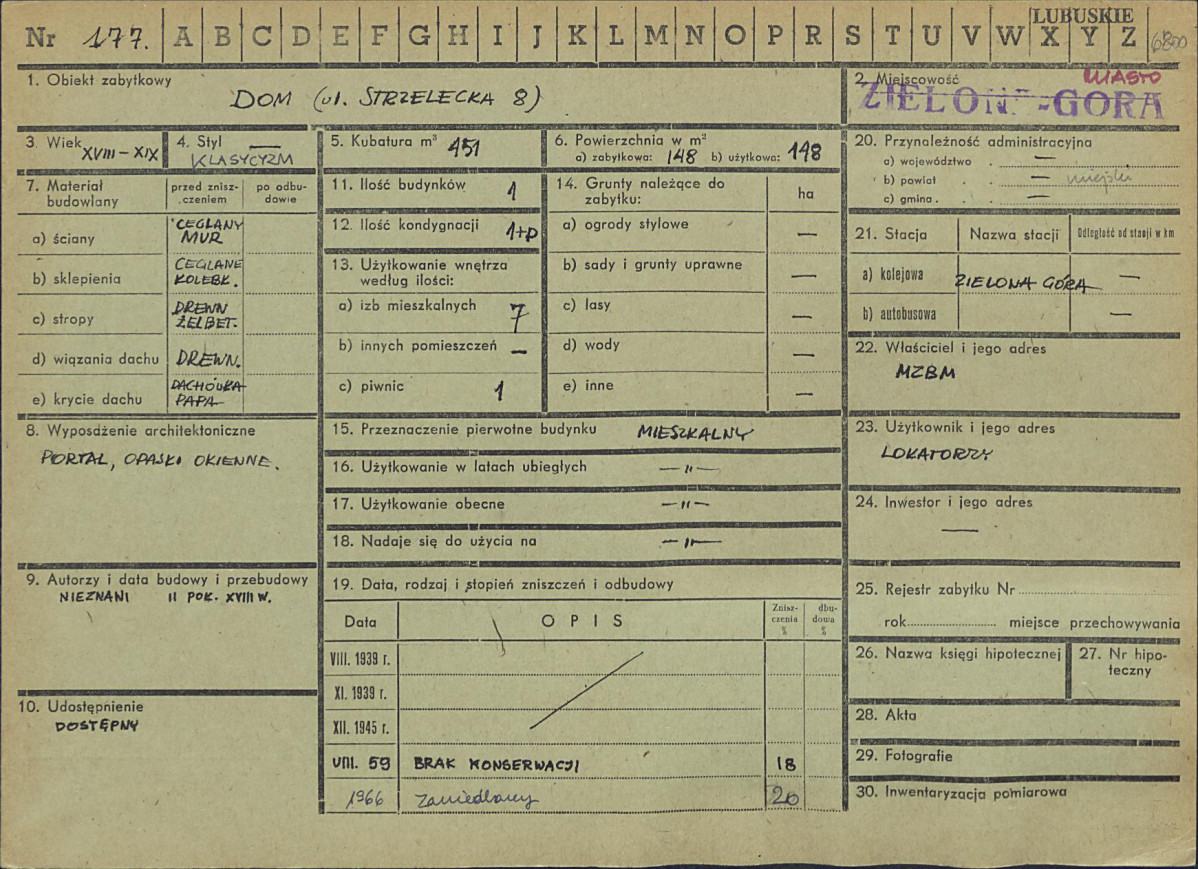 LUBUSKIE
Nr 177. A B C D E F G H I J K L M N O P R S T U V W X Y Z
1. Obiekt zabytkowy
DOM (ul. STRZELECKA 8)
2. Miejscowość
MIASTO
ZIELONA-GÓRA
3. Wiek XVIII – XIX
4. Styl —
KLASYCYZM
5. Kubatura m³ 451
6. Powierzchnia w m²
a) zabytkowa: 148 b) użytkowa: 148
7. Materiał budowlany
przed znisz-
czeniem
po odbu-
dowie
a) ściany CEGLANY MUR
b) sklepienia CEGLANE KOLEBK.
c) stropy DREWN ŻELBET.
d) wiązania dachu DREWN.
e) krycie dachu DACHÓWKA PAPA
8. Wyposdżenie architektoniczne
PORTAL, OPASKI OKIENNE.
9. Autorzy i data budowy i przebudowy
NIEZNANI II POŁ. XVIII W.
10. Udostępnienie
DOSTĘPNY
11. Ilość budynków 1
12. Ilość kondygnacji 1+p
13. Użytkowanie wnętrza
według ilości:
a) izb mieszkalnych 7
b) innych pomieszczeń —
c) piwnic 1
14. Grunty należące do
zabytku:
ha
a) ogrody stylowe —
b) sady i grunty uprawne —
c) lasy —
d) wody —
e) inne —
15. Przeznaczenie pierwotne budynku MIESZKALNY
16. Użytkowanie w latach ubiegłych —"—
17. Użytkowanie obecne —"—
18. Nadaje się do użycia na —"—
19. Data, rodzaj i stopień zniszczeń i odbudowy
Data OPIS
Znisz-
czenia
%
dbu-
dowa
%
VIII. 1939 r.
XI. 1939 r.
XII. 1945 r.
VIII. 59 BRAK KONSERWACJI 18
1966 zaniedbany 20
20. Przynależność administracyjna
a) województwo . —
b) powiat . . — miejski
c) gmina . . —
21. Stacja Nazwa stacji Odległość od stacji w km
a) kolejowa ZIELONA GÓRA —
b) autobusowa —
22. Właściciel i jego adres
MZBM
23. Użytkownik i jego adres
LOKATORZY
24. Inwestor i jego adres
—
25. Rejestr zabytku Nr
rok miejsce przechowywania
26. Nazwa księgi hipotecznej
27. Nr hipo-
teczny
28. Akta
29. Fotografie
30. Inwentaryzacja pomiarowa